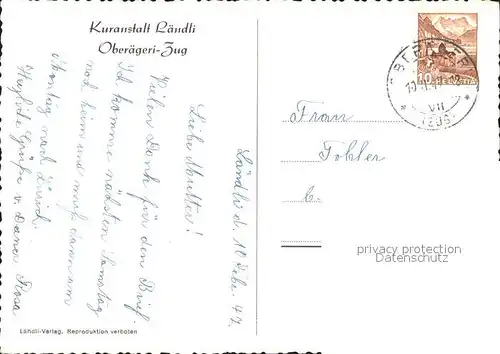 Kuranstalt Ländli
Oberägeri-Zug
Ländli d. 10 Febr. 47.
Liebe Mutter!
Vielen Dank für den Brief.
Ich komme nächsten Samstag
noch heim und muß dann am
Montag nach Zürich.
Herzliche Grüße v. Deiner Rosa
Ländli-Verlag, Reproduktion verboten
Frau
Tobler
10
HELVETIA
VII
(ZUG)
privacy protection
Datenschutz